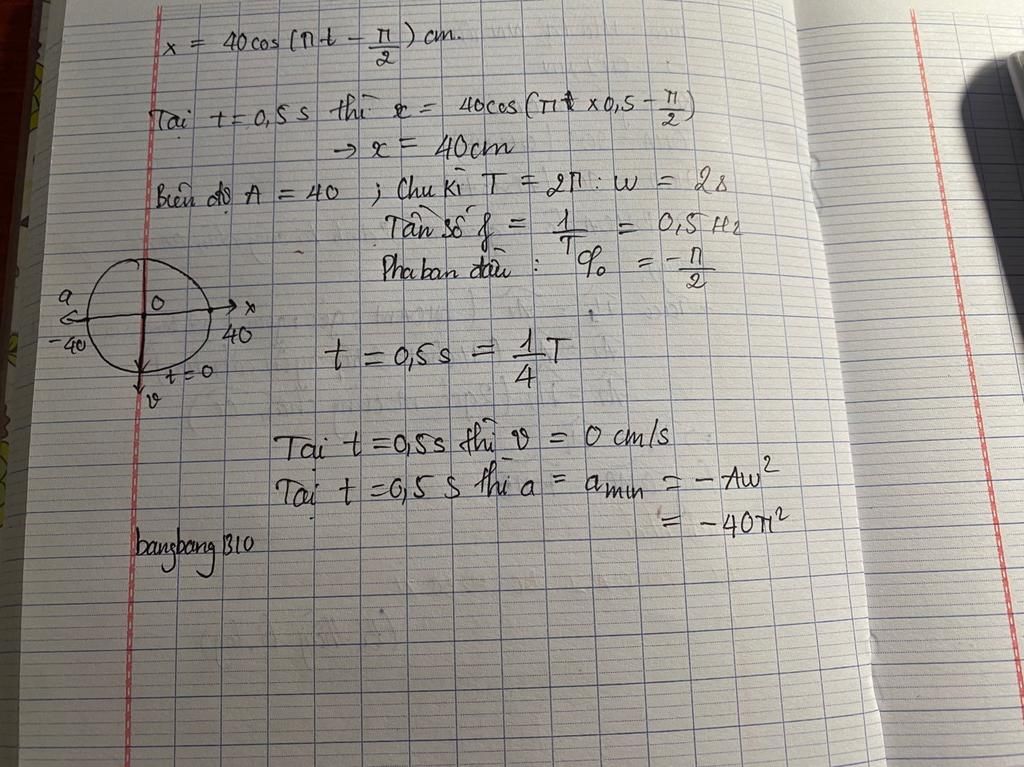 x = 40cos(πt - π/2) cm.
Tại t=0,5s thì x = 40cos(πt × 0,5 - π/2)
→ x = 40cm
Biên độ A = 40 ; Chu kì T = 2π : w = 2s
Tần số f = 1/T = 0,5 Hz
Pha ban đầu : φ₀ = -π/2
a
O
x
-40
40
t=0
v
t = 0,5s = 1/4 T
Tại t=0,5s thì v = 0 cm/s
Tại t=0,5 s thì a = amin = -Aw²
= -40π²
bangbang1310